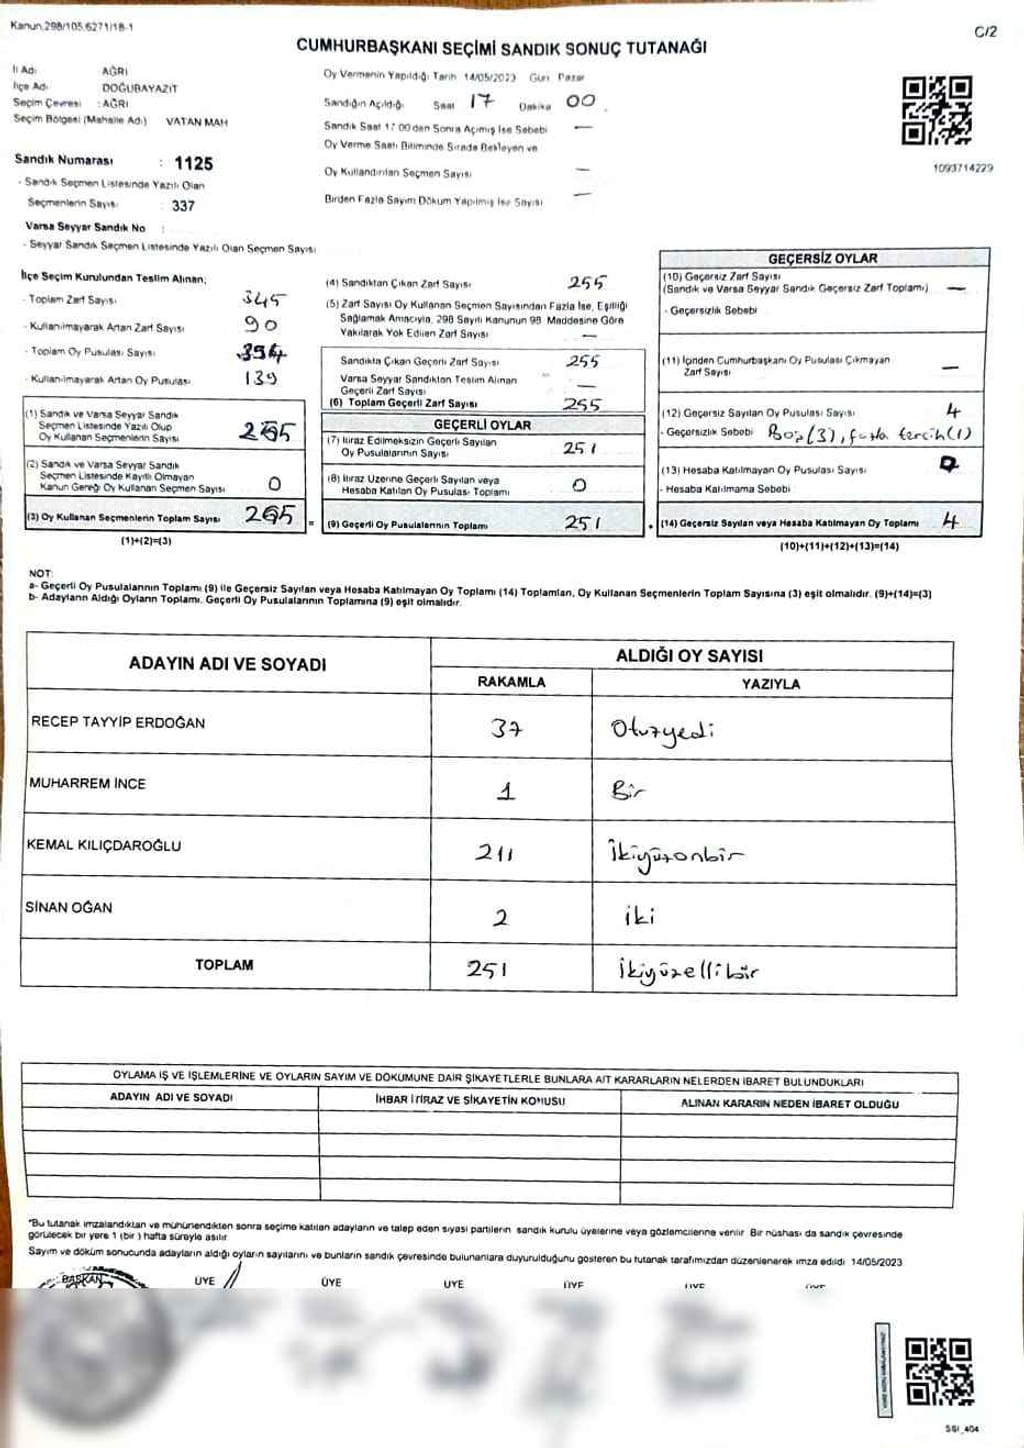 Kanun.298/105,6271/18-1
C/2
CUMHURBAŞKANI SEÇİMİ SANDIK SONUÇ TUTANAĞI
İl Adı AĞRI
İlçe Adı DOĞUBAYAZIT
Seçim Çevresi : AĞRI
Seçim Bölgesi (Mahalle Adı) VATAN MAH
Oy Vermenin Yapıldığı Tarih 14/05/2023 Gün Pazar
Sandığın Açıldığı Saat 17 Dakika 00
Sandık Saat 17 00 den Sonra Açımış İse Sebebi —
Oy Verme Saati Bitiminde Sırada Bekleyen ve
Oy Kullandırılan Seçmen Sayısı —
Birden Fazla Sayım Döküm Yapılmış İse Sayısı —
1093714229
Sandık Numarası : 1125
- Sandık Seçmen Listesinde Yazılı Olan
Seçmenlerin Sayısı 337
Varsa Seyyar Sandık No :
- Seyyar Sandık Seçmen Listesinde Yazılı Olan Seçmen Sayısı
İlçe Seçim Kurulundan Teslim Alınan;
- Toplam Zarf Sayısı 345
- Kullanılmayarak Artan Zarf Sayısı 90
- Toplam Oy Pusulası Sayısı 394
- Kullanılmayarak Artan Oy Pusulası 139
(1) Sandık ve Varsa Seyyar Sandık
Seçmen Listesinde Yazılı Olup
Oy Kullanan Seçmenlerin Sayısı
(2) Sandık ve Varsa Seyyar Sandık
Seçmen Listesinde Kayıtlı Olmayan
Kanun Gereği Oy Kullanan Seçmen Sayısı 0
(3) Oy Kullanan Seçmenlerin Toplam Sayısı =
(1)+(2)=(3)
(4) Sandıktan Çıkan Zarf Sayısı 255
(5) Zarf Sayısı Oy Kullanan Seçmen Sayısından Fazla İse, Eşitliği
Sağlamak Amacıyla, 298 Sayılı Kanunun 98 Maddesine Göre
Yakılarak Yok Edilen Zarf Sayısı —
Sandıkta Çıkan Geçerli Zarf Sayısı 255
Varsa Seyyar Sandıktan Teslim Alınan
Geçerli Zarf Sayısı —
(6) Toplam Geçerli Zarf Sayısı 255
GEÇERLİ OYLAR
(7) İtiraz Edilmeksizin Geçerli Sayılan
Oy Pusulalarının Sayısı 251
(8) İtiraz Üzerine Geçerli Sayılan veya
Hesaba Katılan Oy Pusulası Toplamı 0
(9) Geçerli Oy Pusulalarının Toplamı 251
GEÇERSİZ OYLAR
(10) Geçersiz Zarf Sayısı
(Sandık ve Varsa Seyyar Sandık Geçersiz Zarf Toplamı) —
- Geçersizlik Sebebi
(11) İçinden Cumhurbaşkanı Oy Pusulası Çıkmayan
Zarf Sayısı —
(12) Geçersiz Sayılan Oy Pusulası Sayısı 4
- Geçersizlik Sebebi Boş(3), fazla tercih(1)
(13) Hesaba Katılmayan Oy Pusulası Sayısı
- Hesaba Katılmama Sebebi
(14) Geçersiz Sayılan veya Hesaba Katılmayan Oy Toplamı 4
(10)+(11)+(12)+(13)=(14)
NOT:
a- Geçerli Oy Pusulalarının Toplamı (9) ile Geçersiz Sayılan veya Hesaba Katılmayan Oy Toplamı (14) Toplamları, Oy Kullanan Seçmenlerin Toplam Sayısına (3) eşit olmalıdır. (9)+(14)=(3)
b- Adayların Aldığı Oyların Toplamı, Geçerli Oy Pusulalarının Toplamına (9) eşit olmalıdır.
ADAYIN ADI VE SOYADI ALDIĞI OY SAYISI
RAKAMLA YAZIYLA
RECEP TAYYİP ERDOĞAN 37 Otuzyedi
MUHARREM İNCE 1 Bir
KEMAL KILIÇDAROĞLU 211 İkiyüzonbir
SİNAN OĞAN 2 iki
TOPLAM 251 İkiyüzellibir
OYLAMA İŞ VE İŞLEMLERİNE VE OYLARIN SAYIM VE DÖKÜMÜNE DAİR ŞİKAYETLERLE BUNLARA AİT KARARLARIN NELERDEN İBARET BULUNDUKLARI
ADAYIN ADI VE SOYADI İHBAR İTİRAZ VE ŞİKAYETİN KONUSU ALINAN KARARIN NEDEN İBARET OLDUĞU
"Bu tutanak imzalandıktan ve mühürlendikten sonra seçime katılan adayların ve talep eden siyasi partilerin sandık kurulu üyelerine veya gözlemcilerine verilir. Bir nüshası da sandık çevresinde
görülecek bir yere 1 (bir ) hafta süreyle asılır
Sayım ve döküm sonucunda adayların aldığı oyların sayılarını ve bunların sandık çevresinde bulunanlara duyurulduğunu gösteren bu tutanak tarafımızdan düzenlenerek imza edildi 14/05/2023
BAŞKAN ÜYE ÜYE ÜYE ÜYE ÜYE